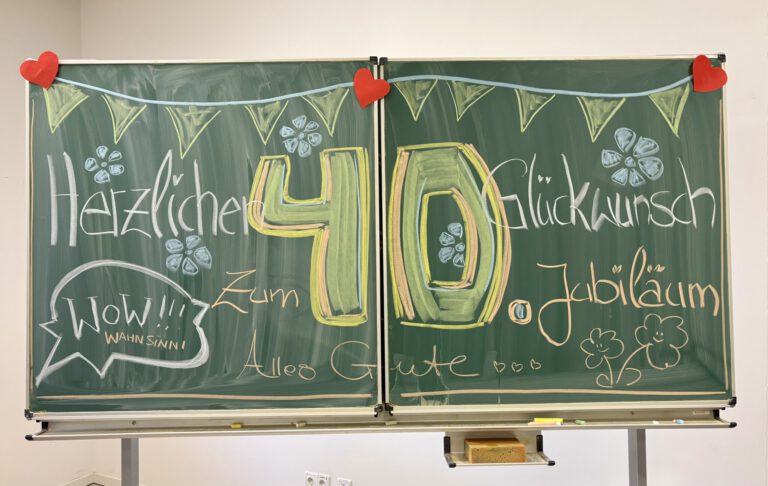 Herzlichen Glückwunsch
Zum 40. Jubiläum
WOW!!!
WAHNSINN!
Alles Gute...